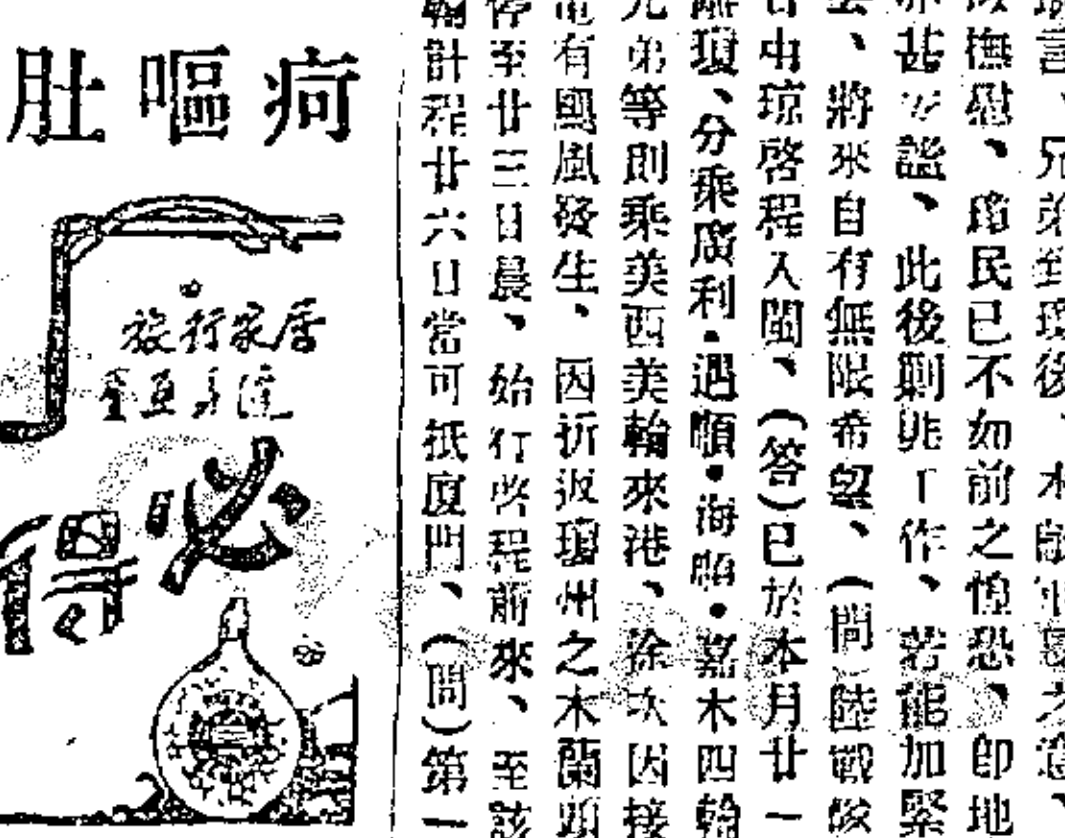 瓊言、兄弟到瓊後、木
撫慰、瓊民已不如前之惶恐、卽地
甚安謐、此後剿匪工作、若能加緊
、將來自有無限希望、(問)陸戰
由琼啓程入閩、(答)已於本月廿一
瓊、分乘廣利·遇順·海順·嘉木四輪
兄弟等則乘美西美輪來港、徐次因接
電有颶風發生、因折返瓊州之木蘭頭
停至廿三日晨、始行啓程前來、至該
輪計程廿六日當可抵廈門、(問)第一
疴嘔肚
旅行家居
必得